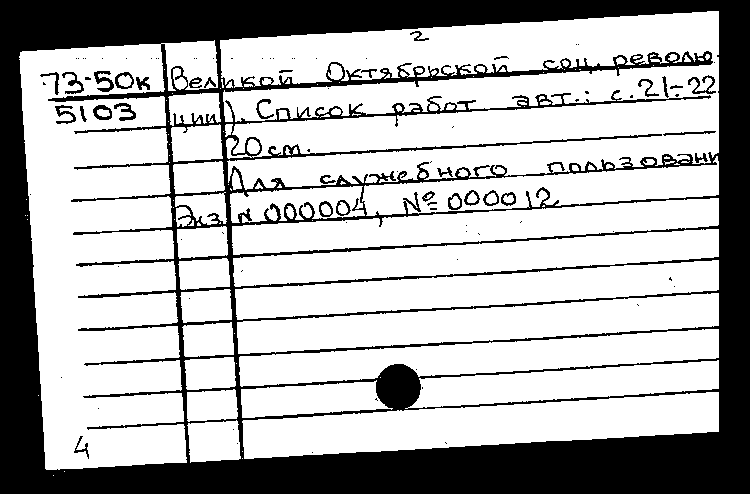 2
73-50к Великой Октябрьской соц. револю-
5103 ции). Список работ авт.: с.21-22
20 см.
Для служебного пользовани
Экз. N 000004, № 000012
4